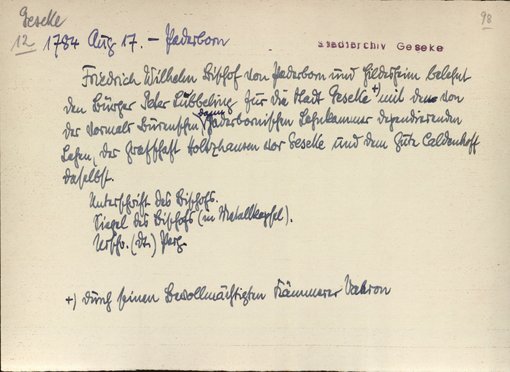 Geseke
98
12 1784 Aug 17. – Paderborn
Stadtarchiv Geseke
Friedrich Wilhelm Bischof von Paderborn und Hildesheim belehnt
den Bürger Peter Lübbeling für die Stadt Geseke +) mit den von
der vormals Bürenschen, dann Paderbornischen Lehnkammer dependierenden
Lehen, der Grafschaft Holthausen vor Geseke und dem Gute Caldenhoff
daselbst.
Unterschrift des Bischofs.
Siegel des Bischofs (in Metallkapsel).
Urschr. (dt.) Perg.
+) durch seinen Bevollmächtigten Kämmerer